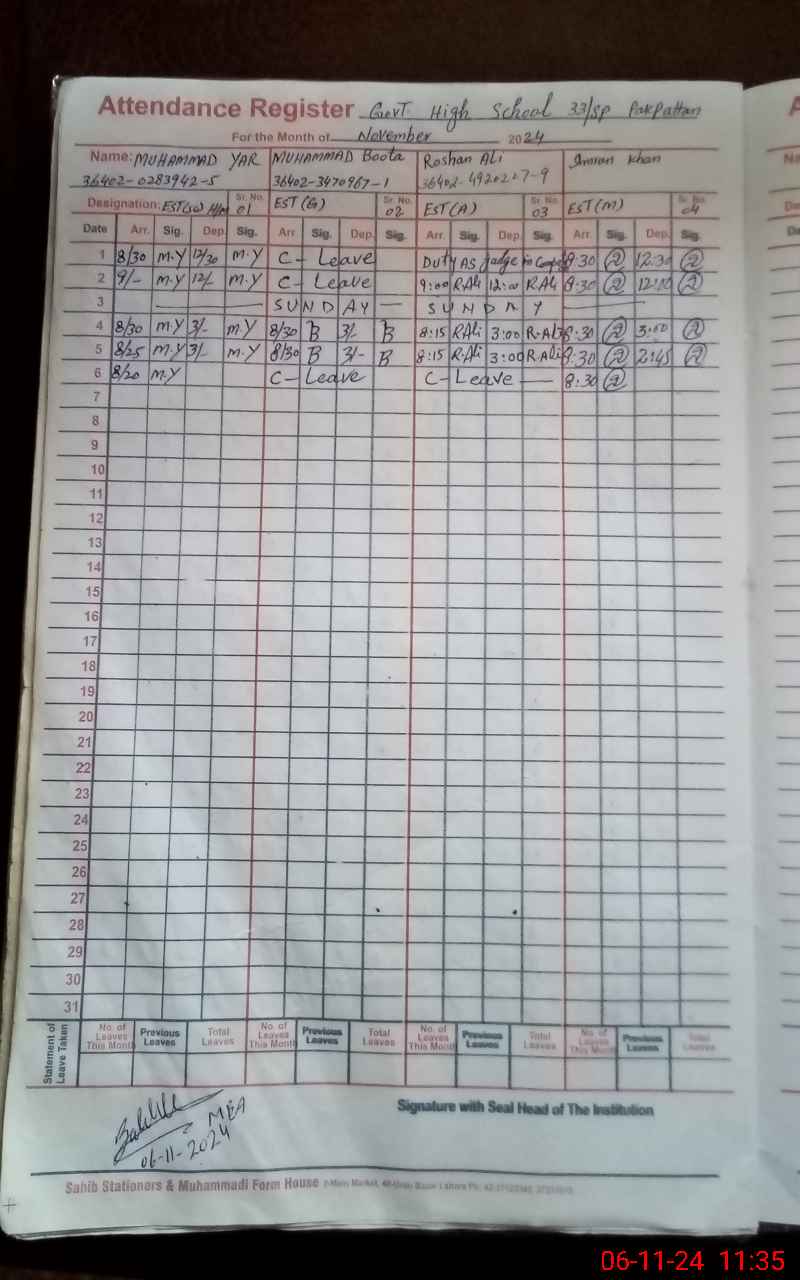 Attendance Register Govt High School 33/SP Pakpattan
For the Month of November 2024
Name: MUHAMMAD YAR MUHAMMAD Boota Roshan Ali Imran Khan
36402-0283942-5 36402-3470967-1 36402-4920207-9
Designation: EST(SC) Sr. No. 01 EST(G) Sr. No. 02 EST(A) Sr. No. 03 EST(M) Sr. No. 04
Date Arr. Sig. Dep. Sig. Arr. Sig. Dep. Sig. Arr. Sig. Dep. Sig. Arr. Sig. Dep. Sig.
1 8/30 M.Y 12/30 M.Y C-Leave Duty AS judge in 8:30 12:30
2 9/- M.Y 12/- M.Y C-Leave 9:00 R.Ali 12:00 R.Ali 8:30
3 SUNDAY SUNDAY
4 8/30 M.Y 3/- M.Y 8/30 B 3/- B 8:15 R.Ali 3:00 R.Ali 8:30 3:00
5 8/25 M.Y 3/- M.Y 8/30 B 3/- B 8:15 R.Ali 3:00 R.Ali 8:30 2:45
6 8/20 M.Y C-Leave C-Leave 8:30
7
8
9
10
11
12
13
14
15
16
17
18
19
20
21
22
23
24
25
26
27
28
29
30
31
Statement of Leave Taken No. of Leaves This Month Previous Leaves Total Leaves No. of Leaves This Month Previous Leaves Total Leaves No. of Leaves This Month Previous Leaves Total Leaves No. of Leaves This Month Previous Leaves Total Leaves
Signature with Seal Head of The Institution
MEA
06-11-2024
Sahib Stationers & Muhammadi Form House
06-11-24 11:35